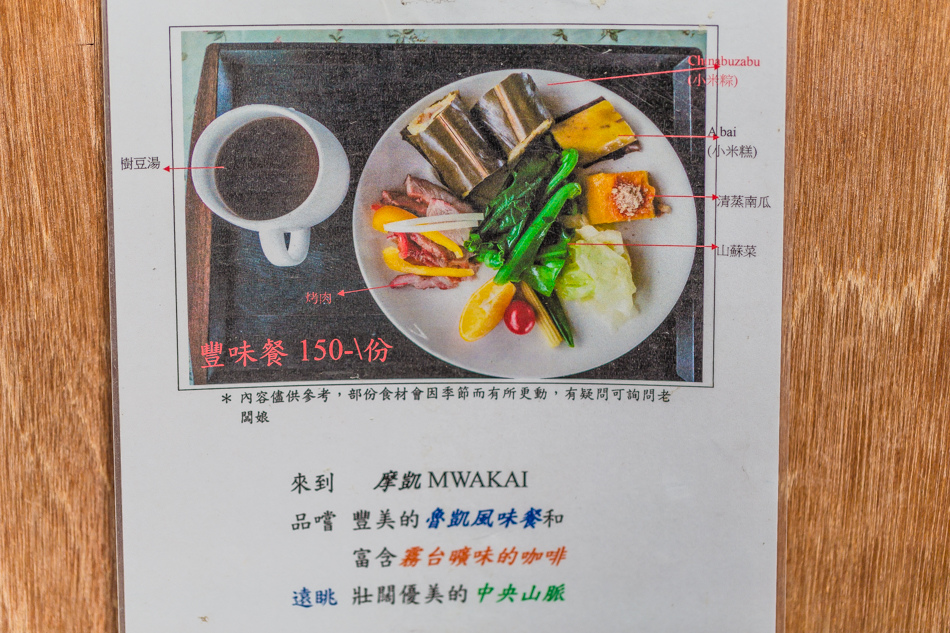 Chinabuzabu
(小米粽)
A bai
(小米糕)
樹豆湯
清蒸南瓜
山蘇菜
烤肉
豐味餐 150-\份
* 內容僅供參考，部份食材會因季節而有所更動，有疑問可詢問老
闆娘
來到 摩凱 MWAKAI
品嚐 豐美的魯凱風味餐和
富含霧台曠味的咖啡
遠眺 壯闊優美的中央山脈